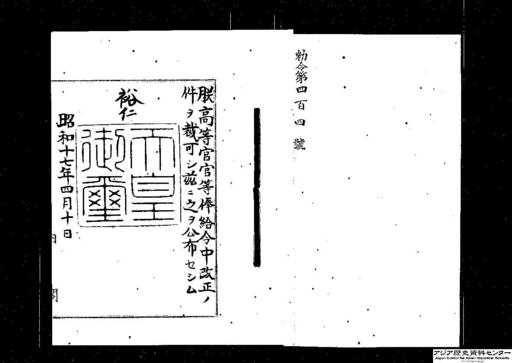 勅令第四百四號
朕高等官官等俸給令中改正ノ
件ヲ裁可シ茲ニ之ヲ公布セシム
裕仁
天皇
御璽
昭和十七年四月十日
アジア歴史資料センター
Japan Center for Asian Historical Records